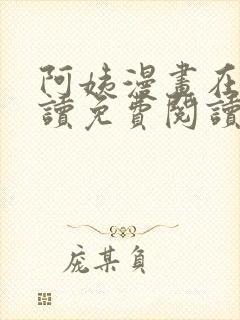 阿姨漫畫在
讀免費閱讀
庞某負